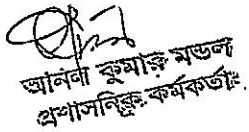 আনন্দ কুমার মন্ডল
প্রশাসনিক কর্মকর্তা